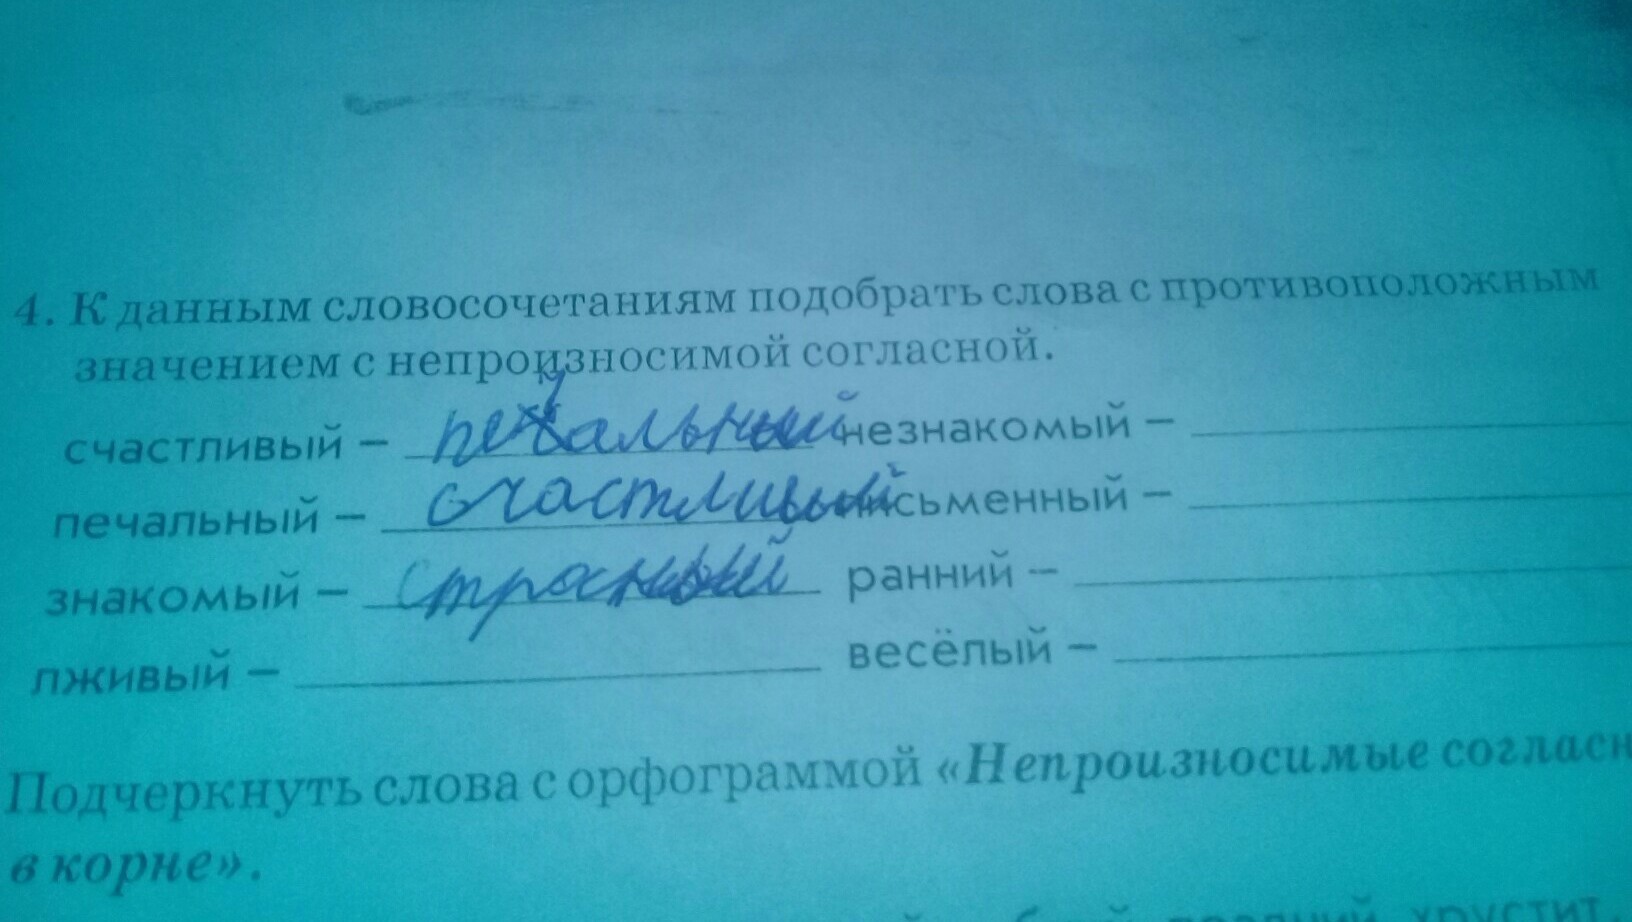 4. К данным словосочетаниям подобрать слова с противоположным
значением с непроизносимой согласной.
счастливый – печальный незнакомый –
печальный – счастливый письменный –
знакомый – ранний –
лживый – весёлый –
Подчеркнуть слова с орфограммой «Непроизносимые согласн
в корне».
хрустит,